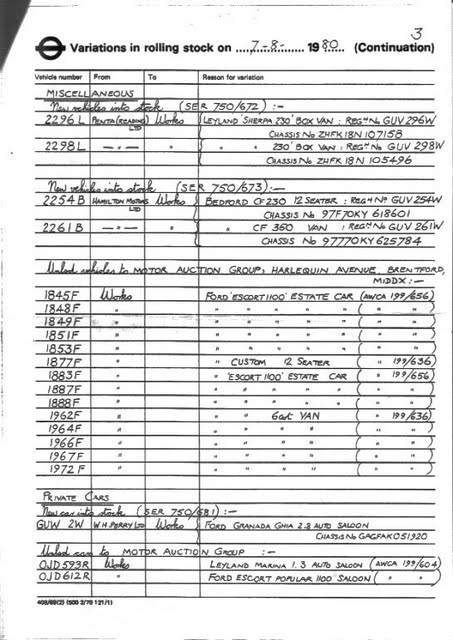 3
Variations in rolling stock on ....7-8-.... 1980.. (Continuation)
Vehicle number From To Reason for variation
MISCELLANEOUS
New vehicles into stock (SER 750/672) :-
2296L PENTA (READING) LTD Works LEYLAND 'SHERPA 230' BOX VAN : REGn No GUV 296W
CHASSIS No ZHFK 18N 107158
2298L — " — Works " " 230' BOX VAN : REGn No GUV 298W
CHASSIS No ZHFK 18N 105496
New vehicles into stock (SER 750/673) :-
2254B HAMILTON MOTORS LTD Works BEDFORD CF230 12 SEATER : REGn No GUV 254W
CHASSIS No 97F70KY 618601
2261B — " — Works " CF 350 VAN : REGn No GUV 261W
CHASSIS No 97770KY 625784
Unlsed vehicles to MOTOR AUCTION GROUP, HARLEQUIN AVENUE, BRENTFORD,
MIDDX :-
1845F Works FORD 'ESCORT 1100' ESTATE CAR (AWCA 199/656)
1848F " " " " " " ( " " )
1849F " " " " " " ( " " )
1851F " " " " " " ( " " )
1853F " " " " " " ( " " )
1877F " " CUSTOM 12 SEATER ( " 199/636)
1883F " " 'ESCORT 1100' ESTATE CAR ( " 199/656)
1887F " " " " " " ( " " )
1888F " " " " " " ( " " )
1962F " " " 6cwt VAN ( " 199/636)
1964F " " " " " ( " " )
1966F " " " " " ( " " )
1967F " " " " " ( " " )
1972F " " " " " ( " " )
PRIVATE CARS
New car into stock (SER 750/681) :-
GUW 2W W.H. PERRY LTD Works FORD GRANADA GHIA 2.8 AUTO SALOON
CHASSIS No GAGFAK 051920
Unlsed cars to MOTOR AUCTION GROUP :-
OJD 593R Works LEYLAND MARINA 1.3 AUTO SALOON (AWCA 199/604)
OJD 612R " FORD ESCORT POPULAR 1100 SALOON ( " " )
409/89(2) (500 3/79 121/1)